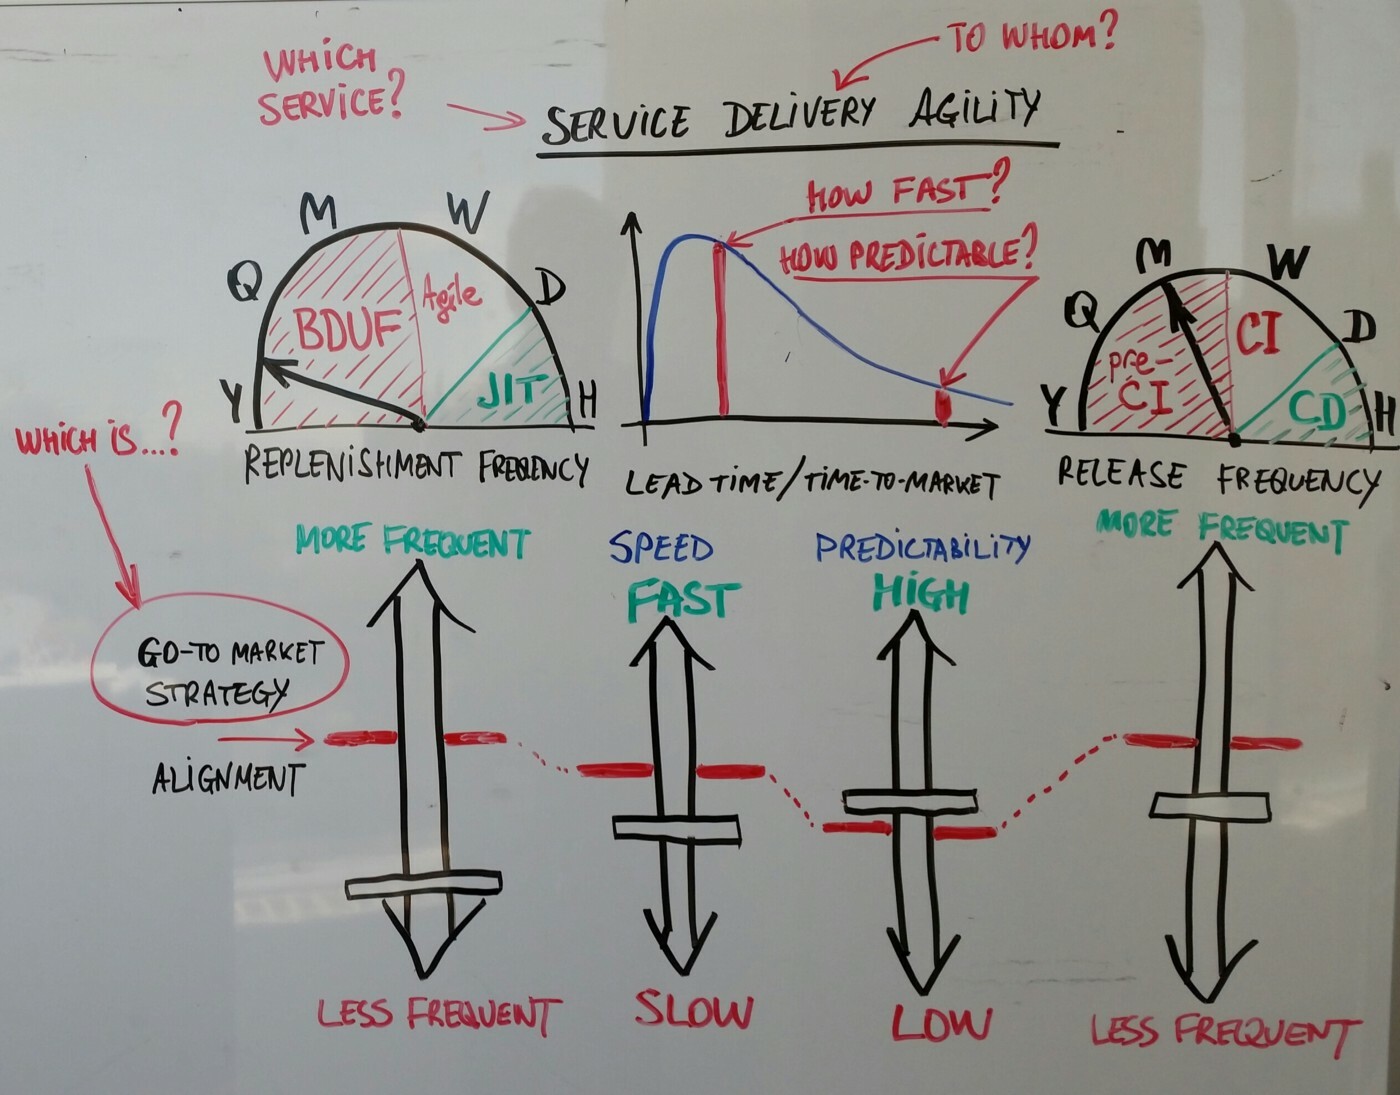 WHICH
SERVICE?
TO WHOM?
SERVICE DELIVERY AGILITY
HOW FAST?
HOW PREDICTABLE?
Y
Q
M
W
D
H
BDUF
Agile
JIT
REPLENISHMENT FREQUENCY
LEAD TIME/TIME-TO-MARKET
Y
Q
M
W
D
H
pre-
CI
CI
CD
RELEASE FREQUENCY
WHICH IS...?
GO-TO MARKET
STRATEGY
ALIGNMENT
MORE FREQUENT
LESS FREQUENT
SPEED
FAST
SLOW
PREDICTABILITY
HIGH
LOW
MORE FREQUENT
LESS FREQUENT